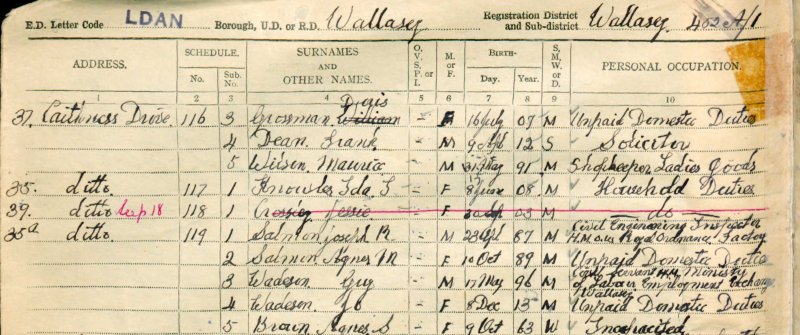 E.D. Letter Code LDAN Borough, U.D. or R.D. Wallasey Registration District and Sub-district Wallasey 402 A/1
ADDRESS. SCHEDULE. SURNAMES AND OTHER NAMES. O. V. S. P. or I. M. or F. BIRTH— S. M. W. or D. PERSONAL OCCUPATION.
No. Sub. No. Day. Year.
1 2 3 4 5 6 7 8 9 10
37. Caithness Drive 116 3 Grossman William Doris – F 16 July 07 M Unpaid Domestic Duties
4 Dean, Frank – M 9 Apl 12 S Solicitor
5 Wilson, Maurice – M 31 May 91 M Shopkeeper Ladies Goods
35. ditto 117 1 Knowles Ida – F 8 June 08 M Household Duties
39. ditto 118 1 Jessie – F 03 M do
35a ditto 119 1 Salmon Joseph R. – M 23 Apl 87 M Civil Engineering Inspector H.M. Royal Ordnance Factory
2 Salmon Agnes M – F 10 Oct 89 M Unpaid Domestic Duties
3 Wadeson Guy – M 17 May 96 M Civil Servant Ministry of Labour Employment Exchange Wallasey
4 Wadeson – F 8 Dec 13 M Unpaid Domestic Duties
5 Brown Agnes S – F 9 Oct 63 W Incapacitated